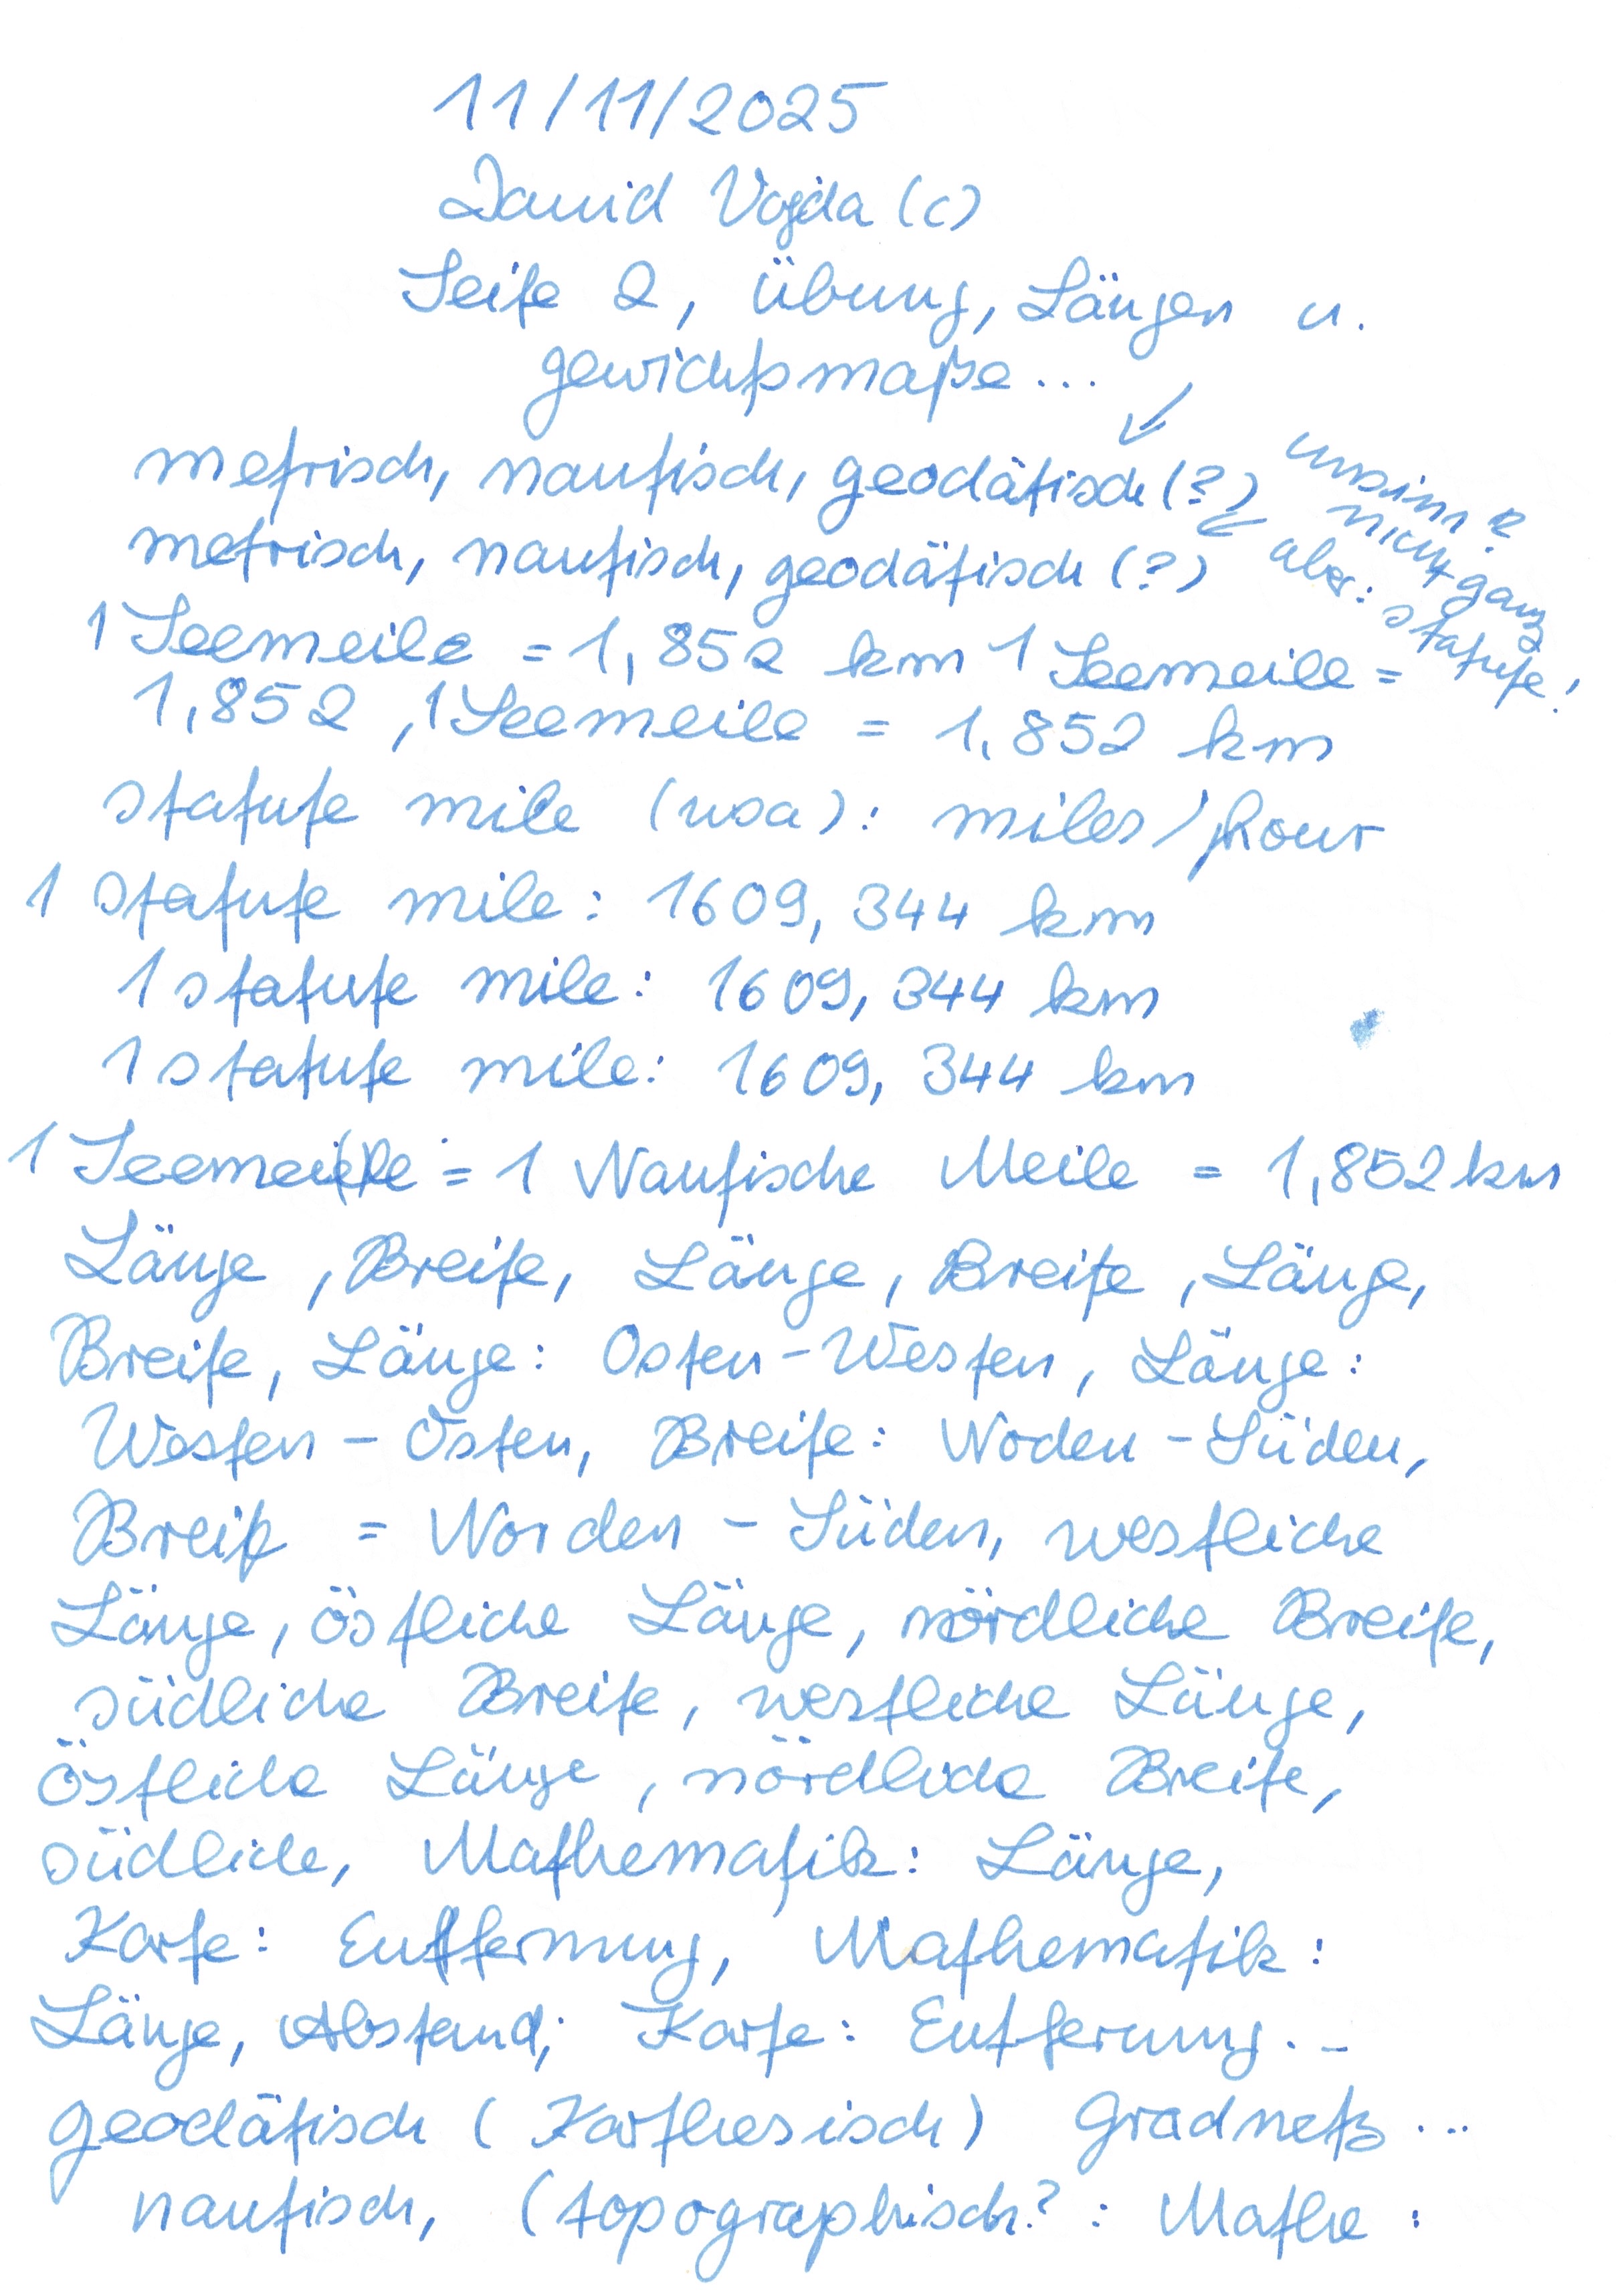 11/11/2025
David Vajda (c)
Seite 2, Übung, Längen u.
gewichtsmaße...
metrisch, nautisch, geodätisch (?)
unsinn?
nicht ganz
aber: statute!
metrisch, nautisch, geodätisch (?)
1 Seemeile = 1,852 km 1 Seemeile =
1,852, 1 Seemeile = 1,852 km
statute mile (usa): miles/hour
1 statute mile: 1609,344 km
1 statute mile: 1609,344 km
1 statute mile: 1609,344 km
1 Seemeile = 1 Nautische Meile = 1,852 km
Länge, Breite, Länge, Breite, Länge,
Breite, Länge: Osten-Westen, Länge:
Westen - Osten, Breite: Noden - Süden,
Breite = Norden - Süden, westliche
Länge, östliche Länge, nördliche Breite,
südliche Breite, westliche Länge,
östliche Länge, nördliche Breite,
südliche, Mathematik: Länge,
Karte: Entfernung, Mathematik:
Länge, Abstand; Karte: Entfernung..-
geodätisch (Karthesisch) Gradnetz...
nautisch, (topographisch? : Mathe :